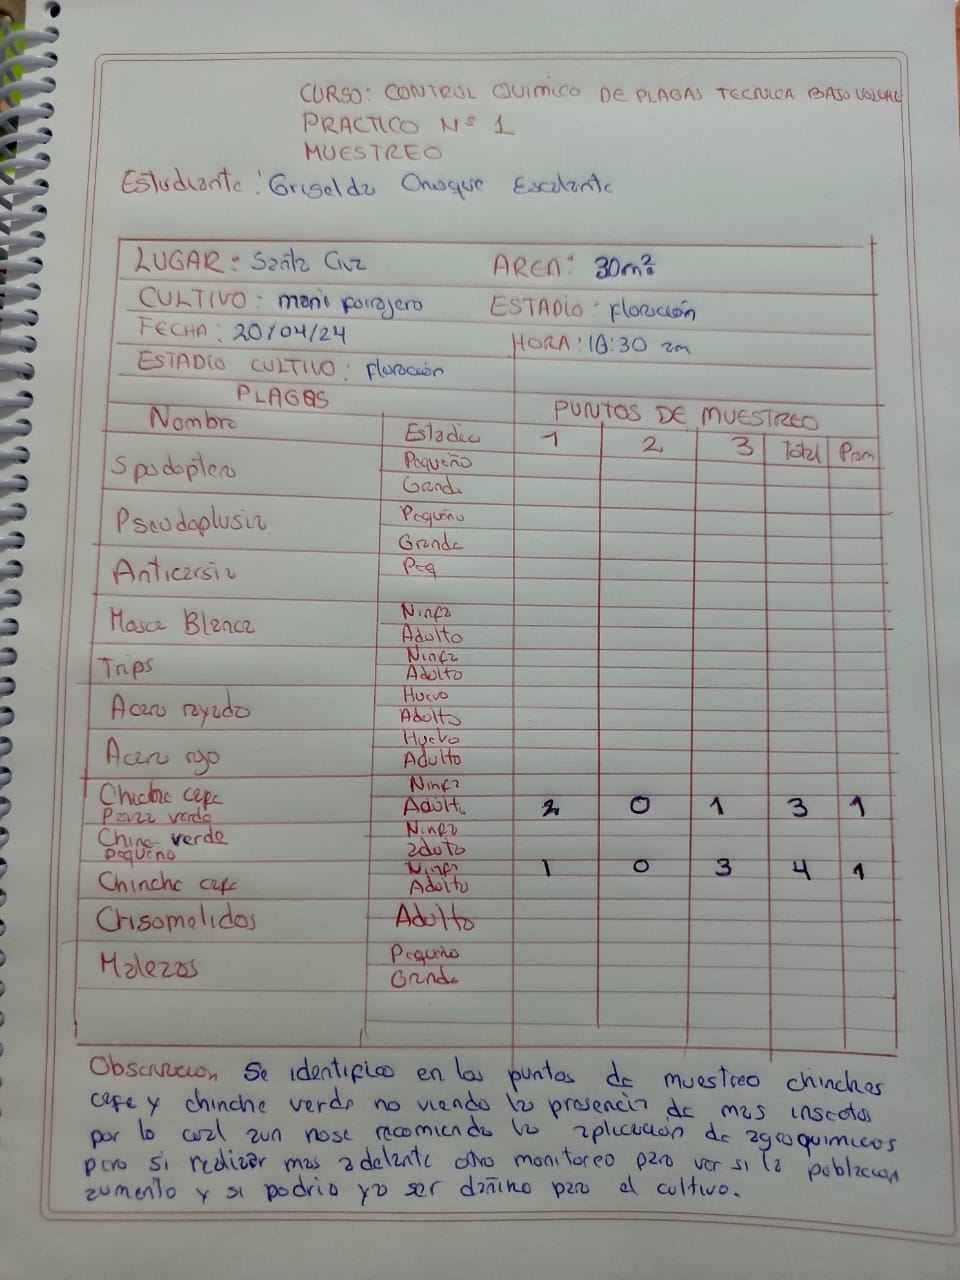 CURSO: CONTROL QUIMICO DE PLAGAS TECNICA BAJO VOLUM
PRACTICO Nº 1
MUESTREO
Estudiante: Griselda Choque Escalante
LUGAR: Santa Cruz AREA: 30m²
CULTIVO: mani forrajero ESTADIO: floración
FECHA: 20/04/24 HORA: 10:30 am
ESTADIO CULTIVO: floración
PLAGAS PUNTOS DE MUESTREO
Nombre Estadio 1 2 3 Total Prom
Spodoptera Pequeño
Grande
Pseudoplusia Pequeño
Grande
Anticarsia Peq
Mosca Blanca Ninfa
Adulto
Trips Ninfa
Adulto
Acaro rayado Huevo
Adulto
Acaro rojo Huevo
Adulto
Chiche cafe Ninfa
Panza verde Adulto 2 0 1 3 1
Chine verde Ninfa
pequeño adulto
Chinche cafe Ninfa 1 0 3 4 1
Adulto
Crisomelidos Adulto
Malezas Pequeño
Grande
Observacion Se identifico en los puntos de muestreo chinches
cafe y chinche verde no viendo la presencia de mas insectos
por lo cual aun nose recomienda la aplicacion de agroquimicos
pero si realizar mas adelante otro monitoreo para ver si la poblacion
aumento y si podria ya ser dañino para el cultivo.